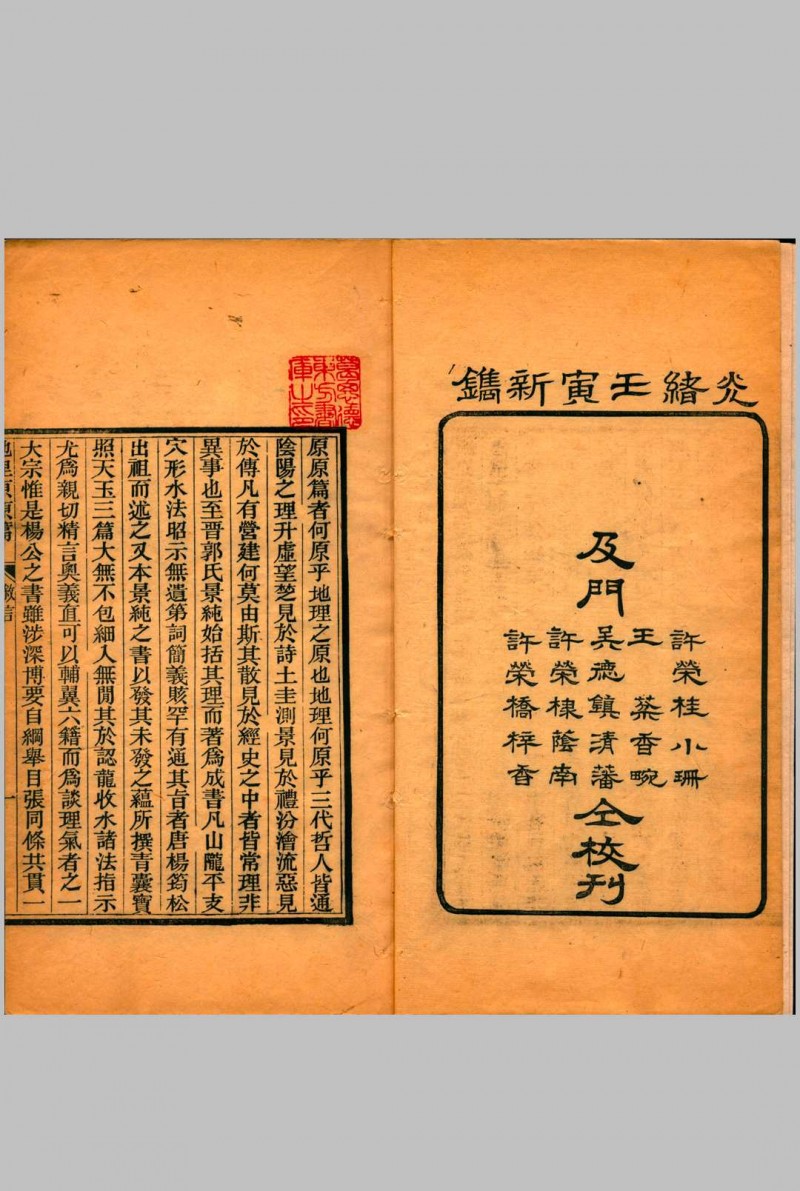 光緒壬寅新鐫
及門
許榮桂小珊
王蘂香畹
吳德鎮清藩
許榮棣蔭南
許榮橋梓香
仝校刊
葛思德東方書庫之印
原原篇者何原乎地理之原也地理何原乎三代哲人皆通
陰陽之理升虛望楚見於詩土圭測景見於禮汾澮流惡見
於傳凡有營建何莫由斯其散見於經史之中者皆常理非
異事也至晋郭氏景純始括其理而著為成書凡山隴平支
穴形水法昭示無遺第詞簡義賅罕有通其旨者唐楊筠松
出祖而述之又本景純之書以發其未發之蘊所撰青囊寶
照天玉三篇大無不包細入無間其於認龍收水諸法指示
尤為親切精言奧義直可以輔翼六籍而為談理氣者之一
大宗惟是楊公之書雖涉深博要自綱舉目張同條共貫一
地理原原篇
一